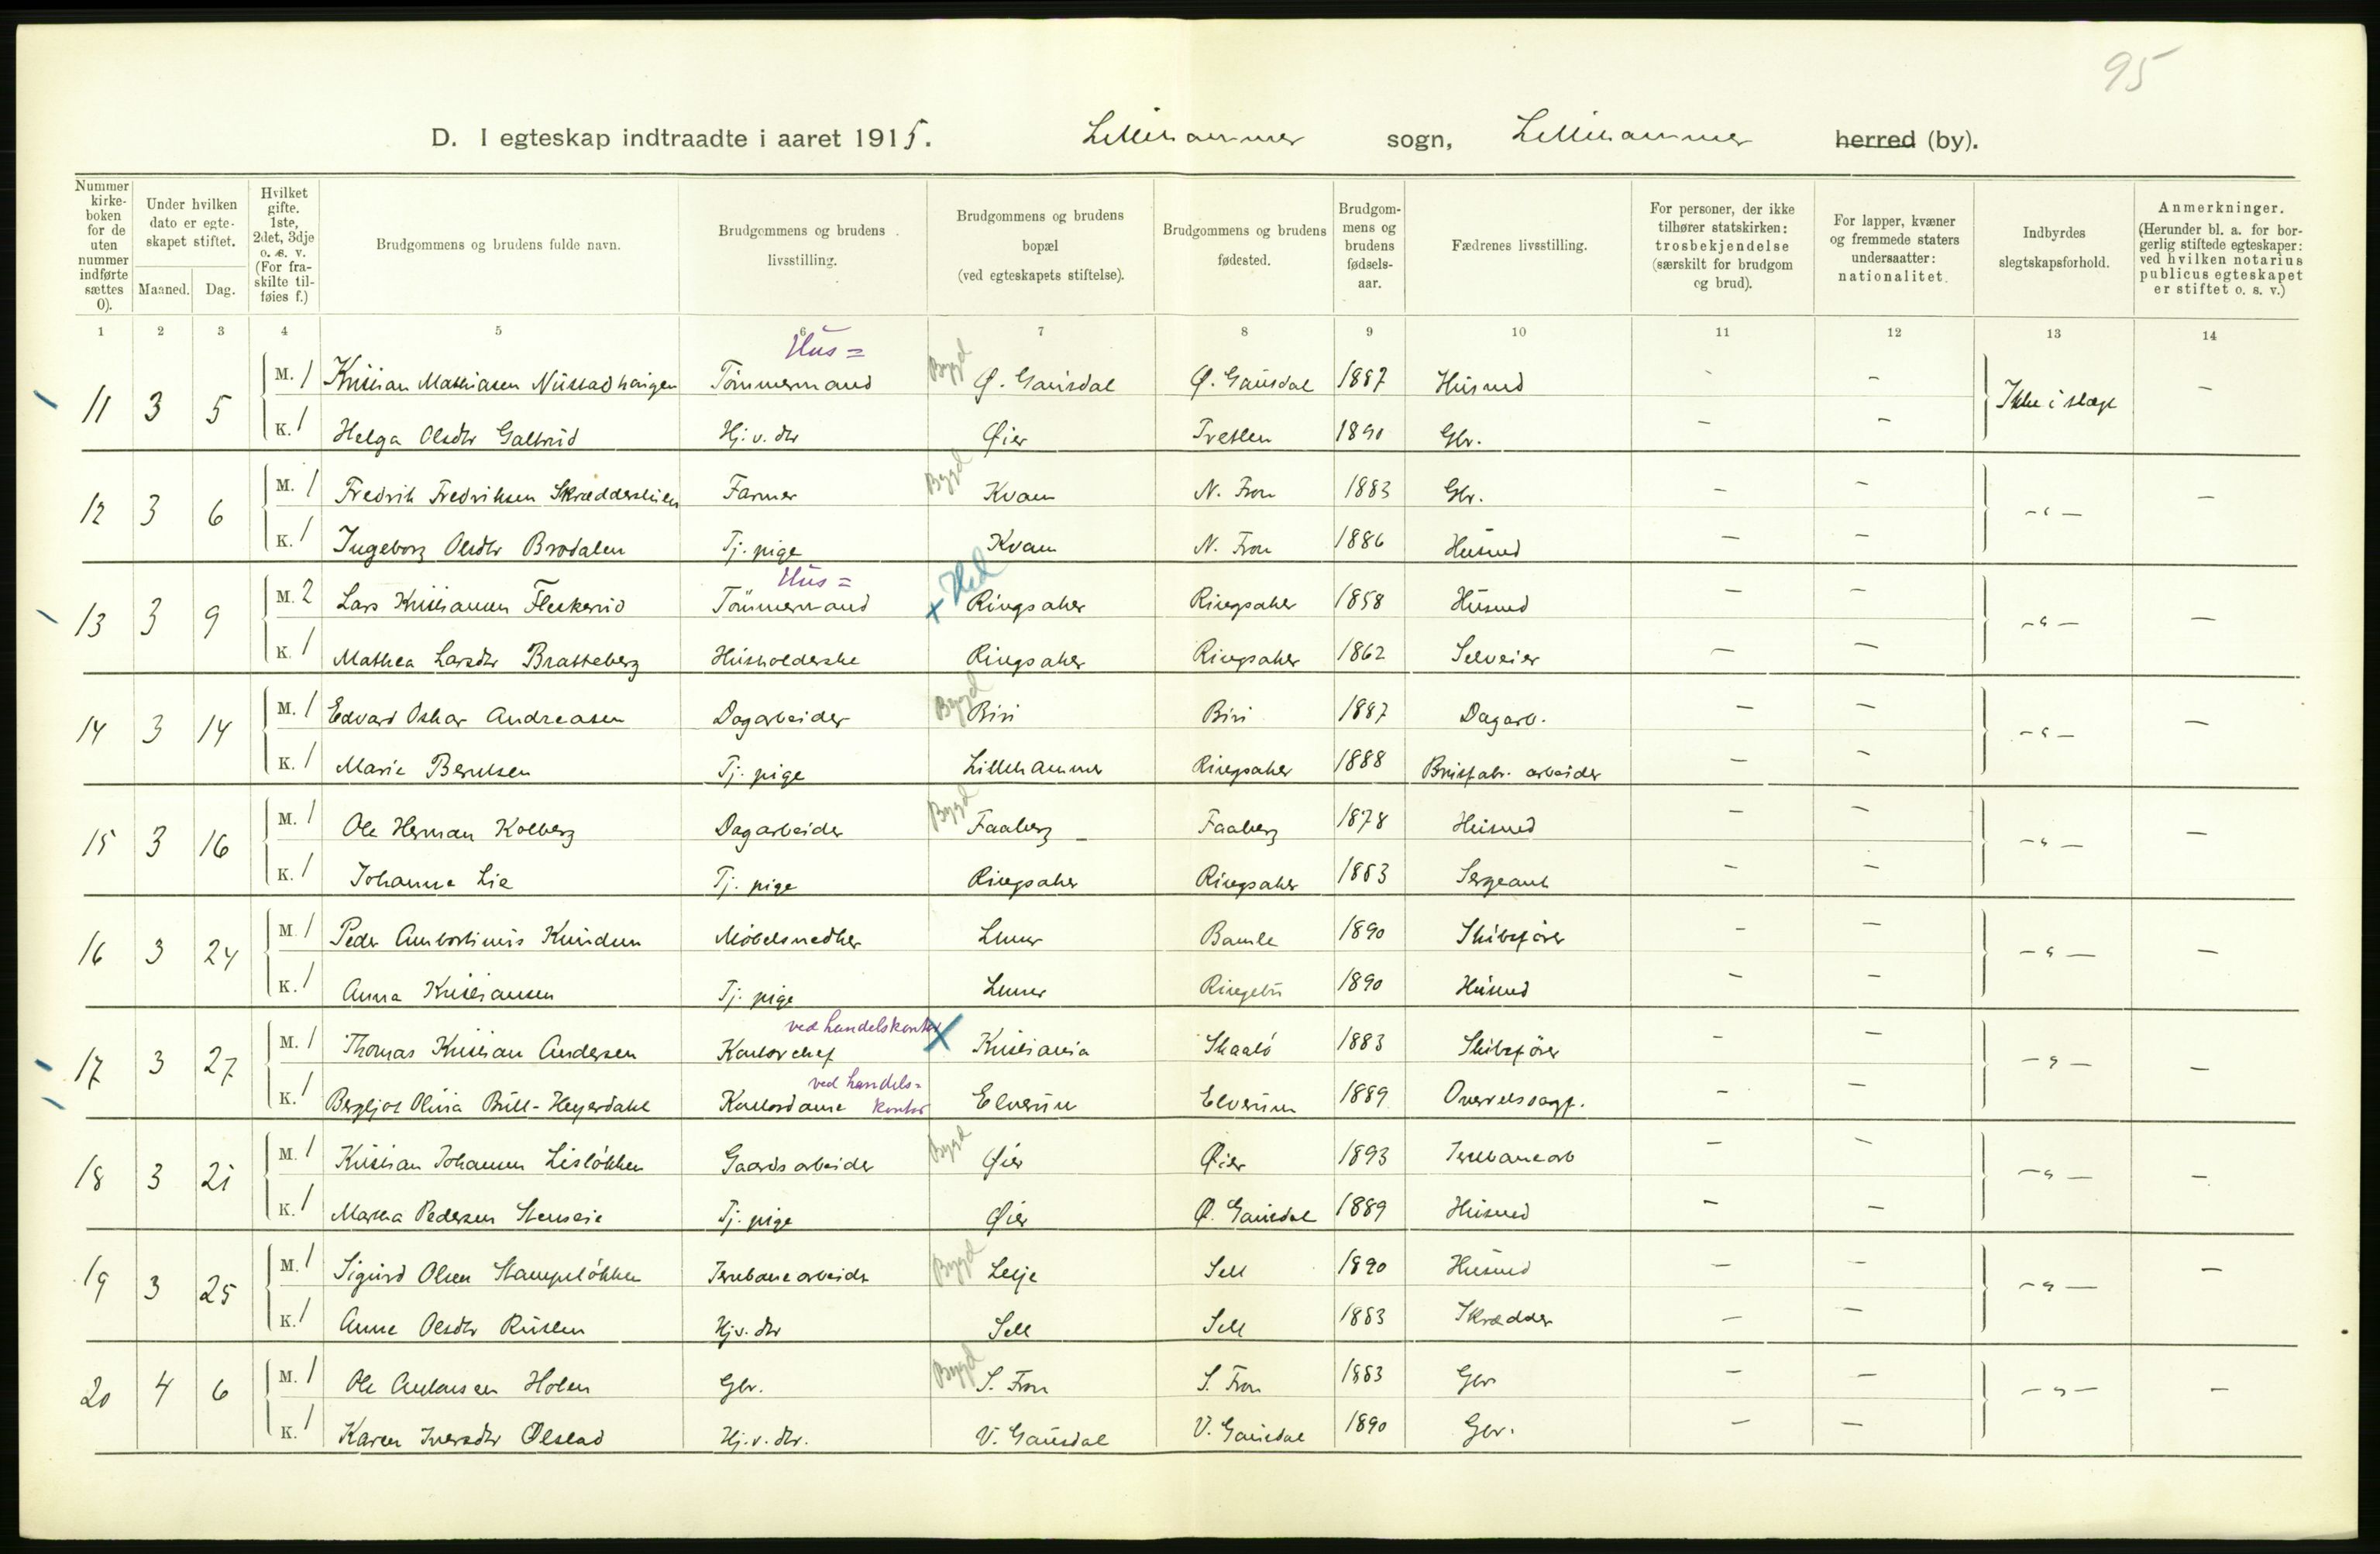 95
D. I egteskap indtraadte i aaret 1915. Lillehammer sogn, Lillehammer herred (by).
Nummer kirkeboken for de uten nummer indførte sættes 0).
Under hvilken dato er egteskapet stiftet.
Maaned. Dag.
Hvilket gifte. 1ste, 2det, 3dje o. s. v. (For fraskilte tilføies f.)
Brudgommens og brudens fulde navn.
Brudgommens og brudens livsstilling.
Brudgommens og brudens bopæl (ved egteskapets stiftelse).
Brudgommens og brudens fødested.
Brudgommens og brudens fødselsaar.
Fædrenes livsstilling.
For personer, der ikke tilhører statskirken: trosbekjendelse (særskilt for brudgom og brud).
For lapper, kvæner og fremmede staters undersaatter: nationalitet.
Indbyrdes slegtskapsforhold.
Anmerkninger. (Herunder bl. a. for borgerlig stiftede egteskaper: ved hvilken notarius publicus egteskapet er stiftet o. s. v.)
1 2 3 4 5 6 7 8 9 10 11 12 13 14
Hus= Bygd
11 3 5 M. 1 Kristian Mathiasen Nustadhaugen Tömmermand Ø. Gausdal Ø. Gausdal 1887 Husmd - - Ikke i slægt -
K. 1 Helga Olsdtr Galtrud Hj. v. dtr Øier Tretten 1890 Gbr. - -
Bygd
12 3 6 M. 1 Fredrik Fredriksen Skrædderstuen Farmer Kvam N. Fron 1883 Gbr. - - -"- -
K. 1 Ingeborg Olsdtr Brodalen Tj. pige Kvam N. Fron 1886 Husmd - -
Hus= Hed
13 3 9 M. 2 Lars Kristiansen Flekkerud Tömmermand x Ringsaker Ringsaker 1858 Husmd - - -"- -
K. 1 Mathea Larsdtr Bratteberg Husholderske Ringsaker Ringsaker 1862 Selveier - -
Bygd
14 3 14 M. 1 Edvard Oskar Andreasen Dagarbeider Biri Biri 1887 Dagarb. - - -"- -
K. 1 Marie Berntsen Tj. pige Lillehammer Ringsaker 1888 arbeider - -
Bygd
15 3 16 M. 1 Ole Herman Kolberg Dagarbeider Faaberg Faaberg 1878 Husmd - - -"- -
K. 1 Johanne Lie Tj. pige Ringsaker Ringsaker 1883 Sergeant - -
16 3 24 M. 1 Peder Knudsen Möbelsnedker Lhmer Bamle 1890 Skibsfører - - -"- -
K. 1 Anna Kristiansen Tj. pige Lhmer Ringebu 1890 Husmd - -
ved handelskontor
17 3 27 M. 1 Thomas Kristian Andersen Kontorchef x Kristiania Skaatö 1883 Skibsfører - - -"- -
ved handels=
K. 1 Bergljot Olivia Bull-Heyerdahl Kontordame kontor Elverum Elverum 1889 Overretssagf. - -
Bygd
18 3 21 M. 1 Kristian Johansen Lislökken Gaardsarbeider Øier Øier 1893 Jernbanearb - - -"- -
K. 1 Martha Pedersen Stenseie Tj. pige Øier Ø. Gausdal 1889 Husmd - -
Bygd
19 3 25 M. 1 Sigurd Olsen Stampelökken Jernbanearbeider Lesje Sell 1890 Husmd - - -"- -
K. 1 Anne Olsdtr Rusten Hj. v. dtr Sell Sell 1883 Skrædder - -
Bygd
20 4 6 M. 1 Ole Antonsen Holen Gbr. S. Fron S. Fron 1883 Gbr - - -"- -
K. 1 Karen Iversdtr Olstad Hj. v. dtr. V. Gausdal V. Gausdal 1890 Gbr. - -